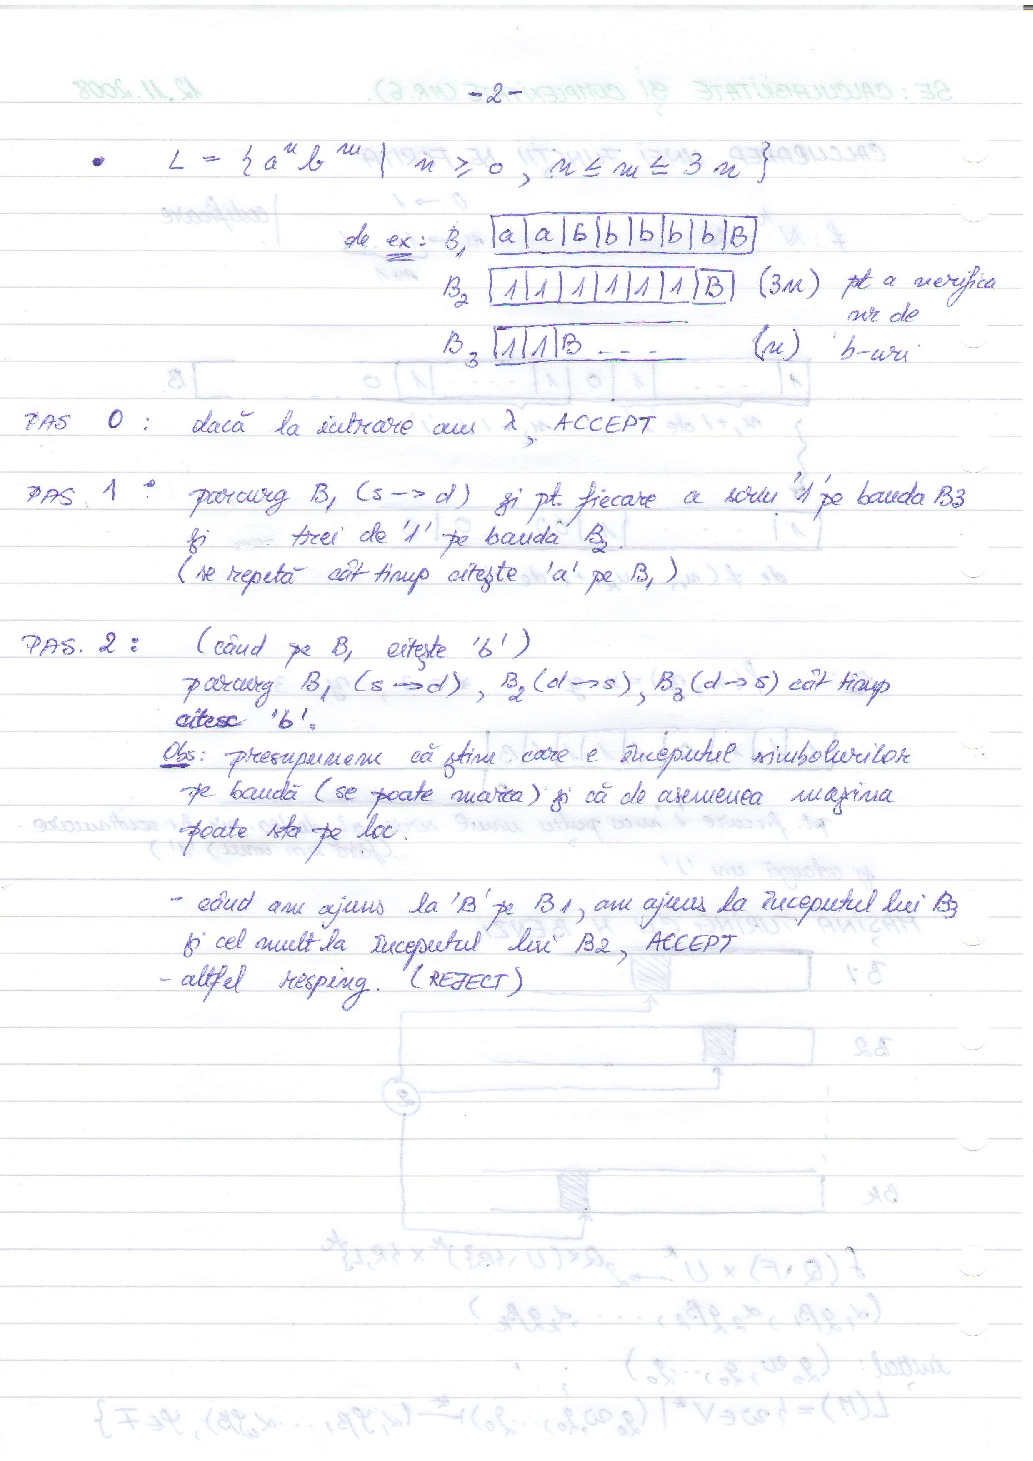 -2-
• L = { aⁿ bᵐ | n ≥ 0, n ≤ m ≤ 3n }
de ex: B₁ |a|a|b|b|b|b|b|B|
B₂ |1|1|1|1|1|1|B| (3n) pt a verifica
nr de
B₃ |1|1|B ---- (n) b-uri
PAS 0 : dacă la intrare am λ, ACCEPT
PAS 1 : parcurg B₁ (s→d) și pt. fiecare a scriu '1' pe banda B3
și trei de '1' pe bandă B₂.
(se repetă cât timp citește 'a' pe B₁)
PAS. 2 : (când pe B₁ citește 'b')
parcurg B₁ (s→d), B₂ (d→s), B₃ (d→s) cât timp
citesc 'b'.
Obs: presupunem că știm care e începutul simbolurilor
pe bandă (se poate marca) și că de asemenea mașina
poate sta pe loc.
- când am ajuns la 'B' pe B1, am ajuns la începutul lui B3
și cel mult la începutul lui B2, ACCEPT
- altfel resping. (REJECT)